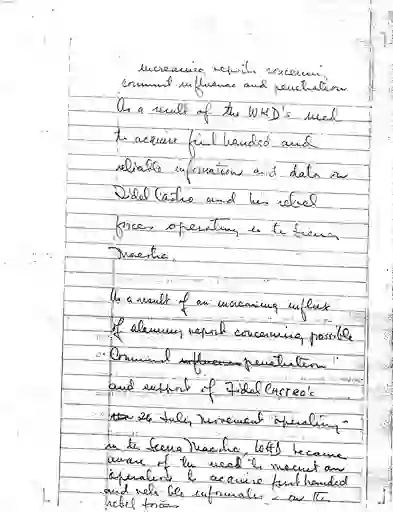 increasing reports concerning
communist influence and penetration
As a result of the WHD's need
to acquire first handed and
reliable information and data on
Fidel Castro and his rebel
forces operating in the Sierra
Maestra.
As a result of an increasing influx
of alarming report concerning possible
Communist influence penetration
and support of Fidel CASTRO's
26 July Movement operating
in the Sierra Maestra, WHD became
aware of the need to mount an
operation to acquire first handed
and reliable information on the
rebel forces